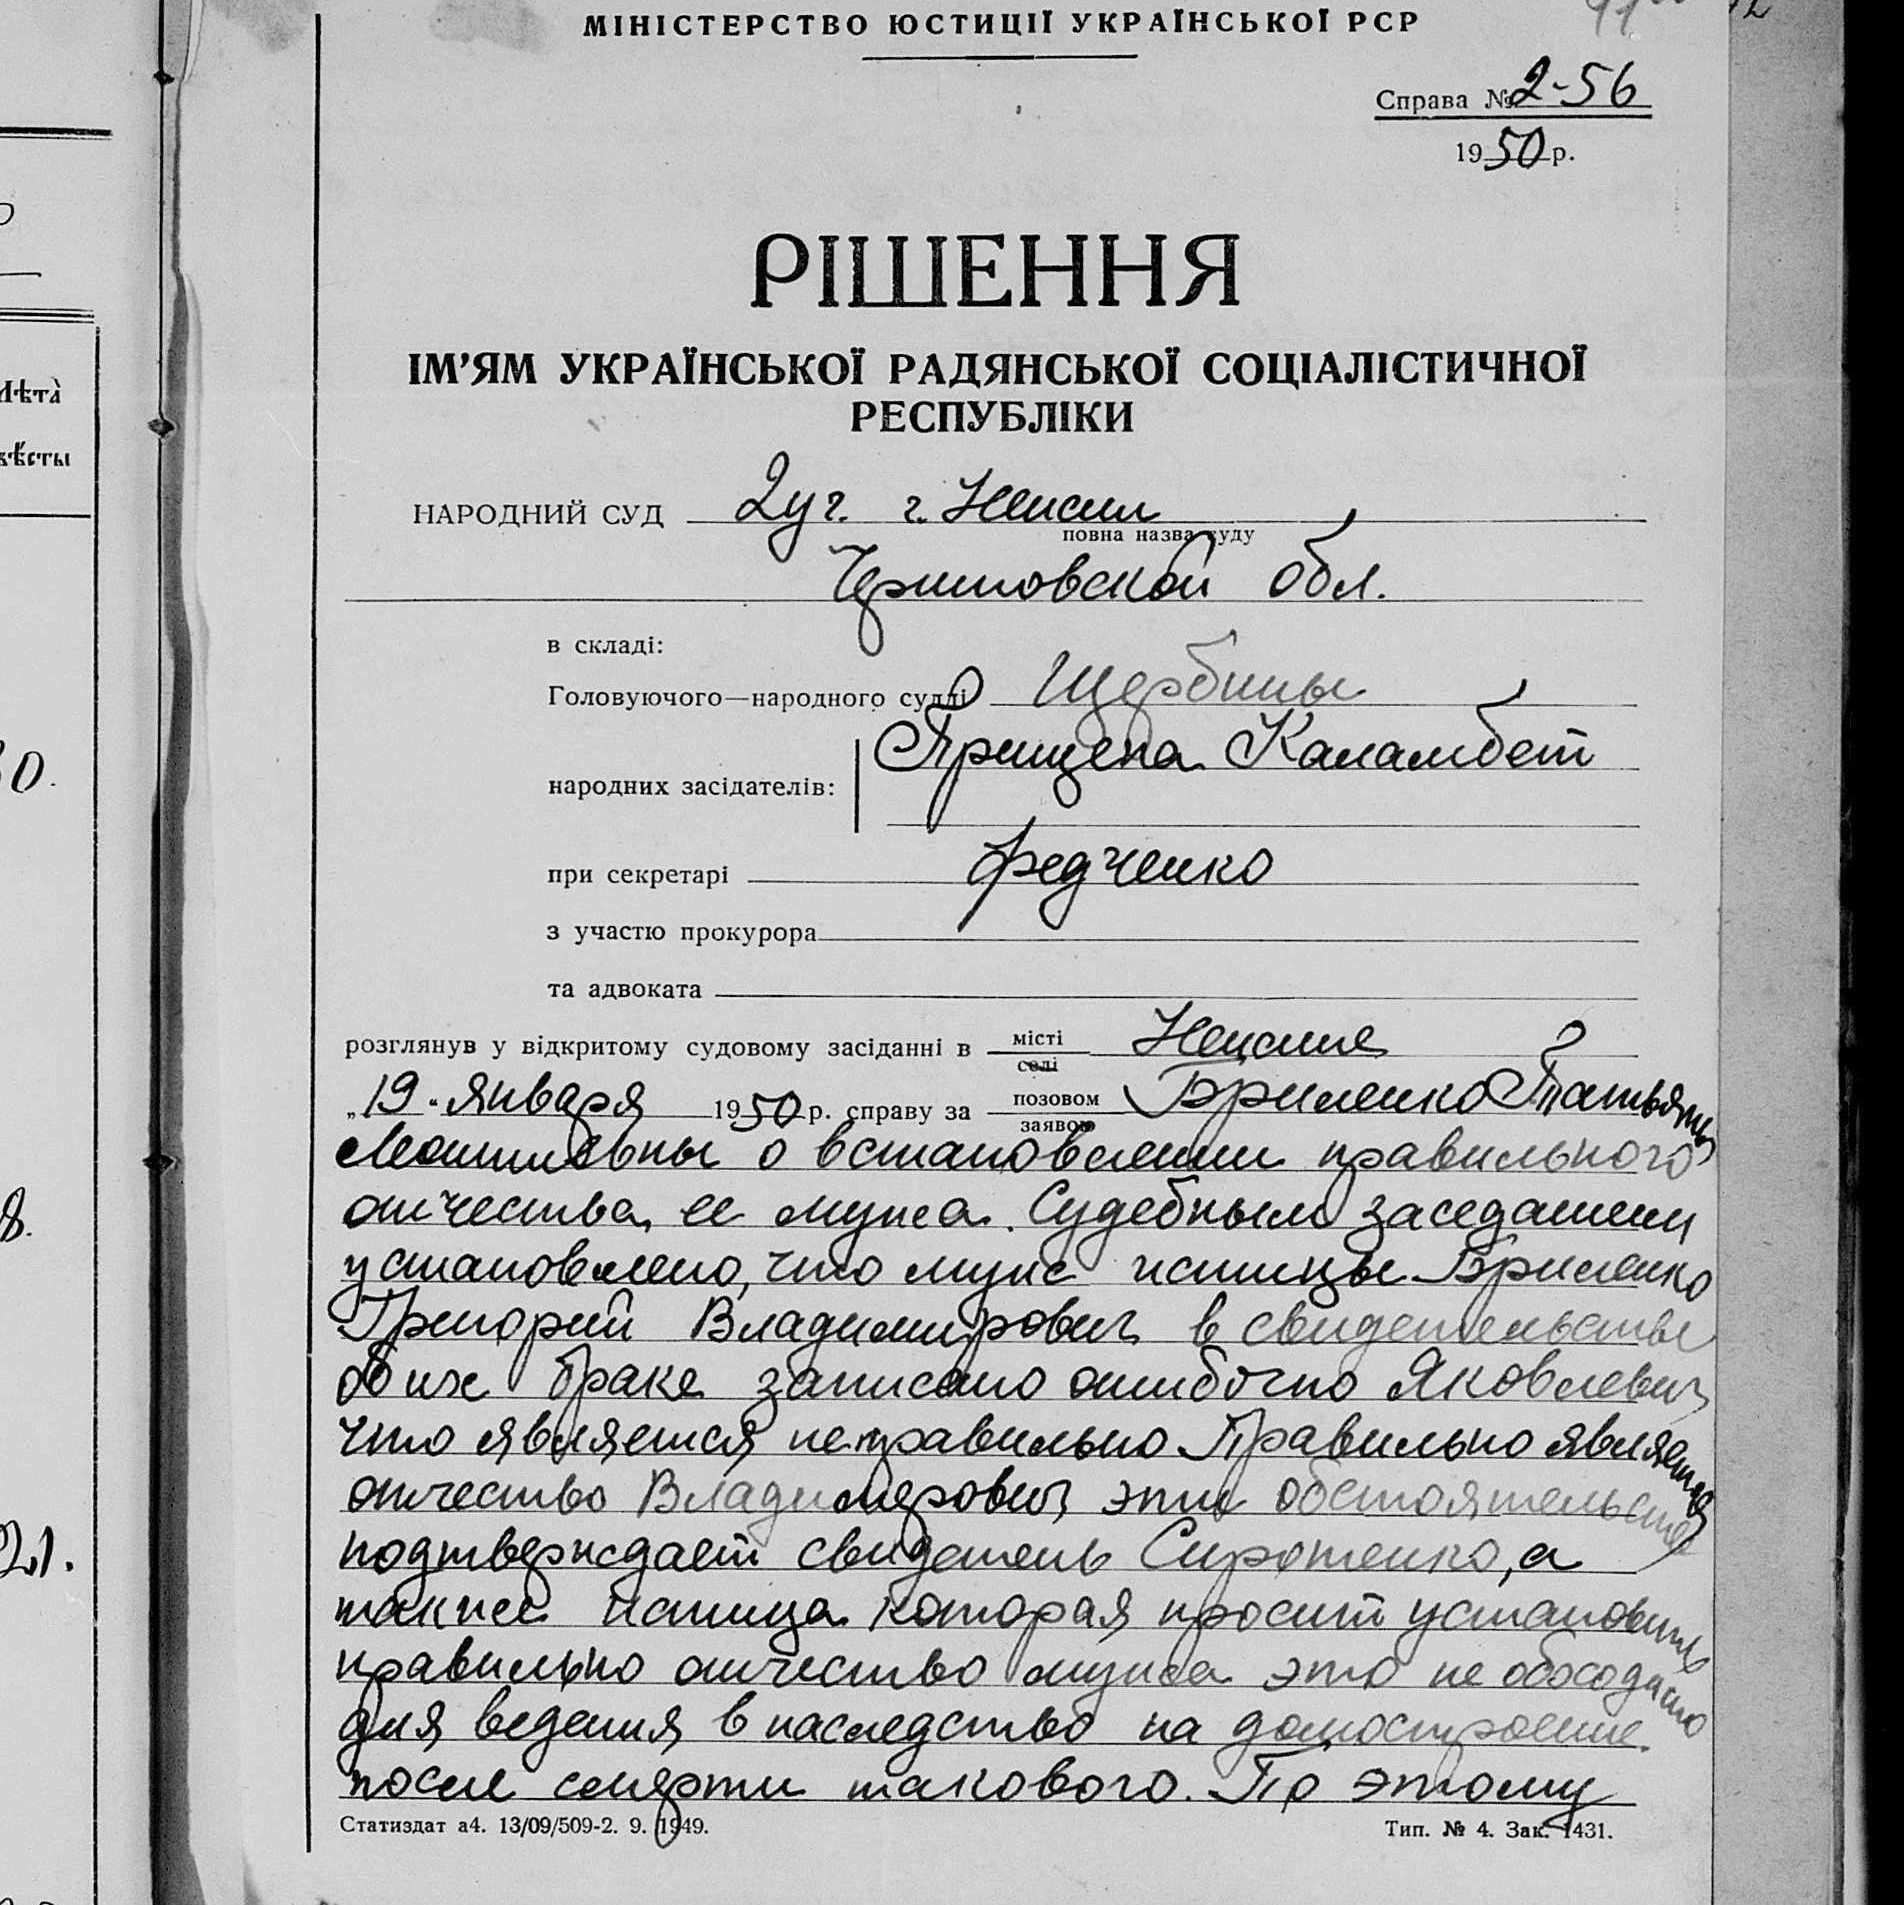 МІНІСТЕРСТВО ЮСТИЦІЇ УКРАЇНСЬКОЇ РСР
Справа № 2-56
1950 р.
РІШЕННЯ
ІМ’ЯМ УКРАЇНСЬКОЇ РАДЯНСЬКОЇ СОЦІАЛІСТИЧНОЇ
РЕСПУБЛІКИ
НАРОДНИЙ СУД 2 уч. г. Нежин
повна назва суду
Черниговской обл.
в складі:
Головуючого—народного судді Щербины
Прищепа Каламбет
народних засідателів:
при секретарі Федченко
з участю прокурора
та адвоката
розглянув у відкритому судовому засіданні в місті Нежине
селі
„19" января 1950 р. справу за позовом Бриленко Татьяны
заявою
о встановлении правильного
отчества ее мужа. Судебным заседанием
установлено, что муж истицы Бриленко
Григорий Владимирович в свидетельстве
об их браке записано ошибочно Яковлевич
что является неправильно Правильно является
отчество Владимирович эти обстоятельства
подтверждает свидетель Сиротенко, а
также истица которая просит установить
правильно отчество мужа это не обходимо
для ведения в наследство на домостроение
после смерти такового. По этому
Статиздат а4. 13/09/509-2. 9. 1949.
Тип. № 4. Зак. 1431.
Лѣта
0.
8.
21.